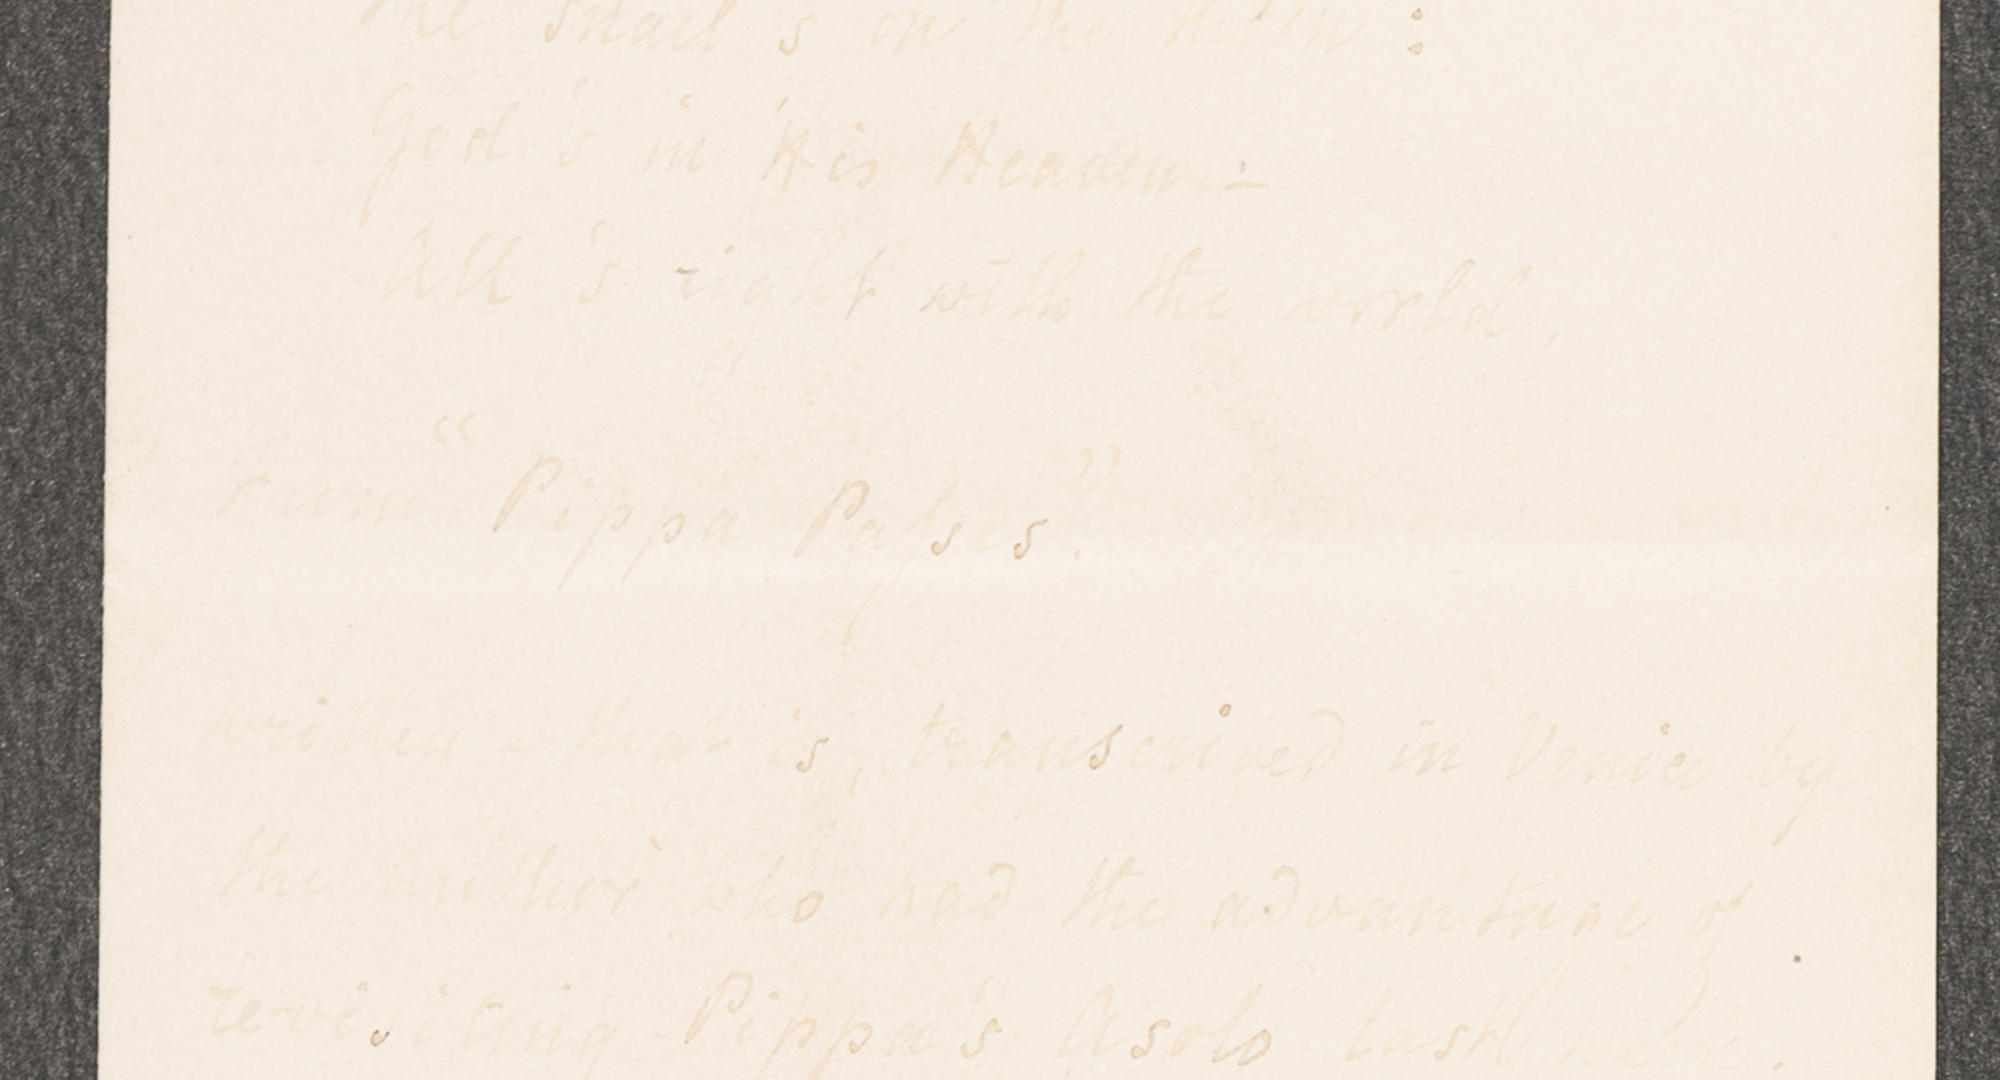 The snail's on the thorn:
God's in His Heaven—
All's right with the world.
From "Pippa Passes".
written – that is, transcribed in Venice by
the author who had the advantage of
re-visiting Pippa's Asolo last week.